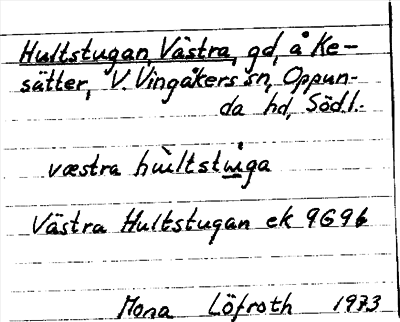 Hultstugan, Västra, gd, å Ke-
sätter, V. Vingåkers sn, Oppun-
da hd, Södl.
væstra
Västra Hultstugan ek 9G9b
Mona Löfroth 1973